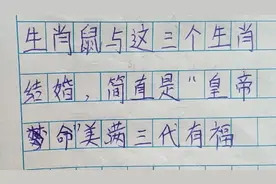 生肖鼠与这三个生肖
结婚，简直是“皇帝
命”美满三代有福